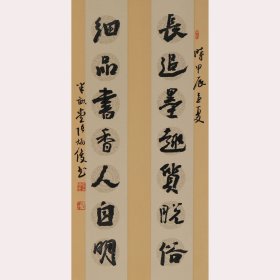 長追墨趣質脫俗
時甲辰之夏
細品書香人自明